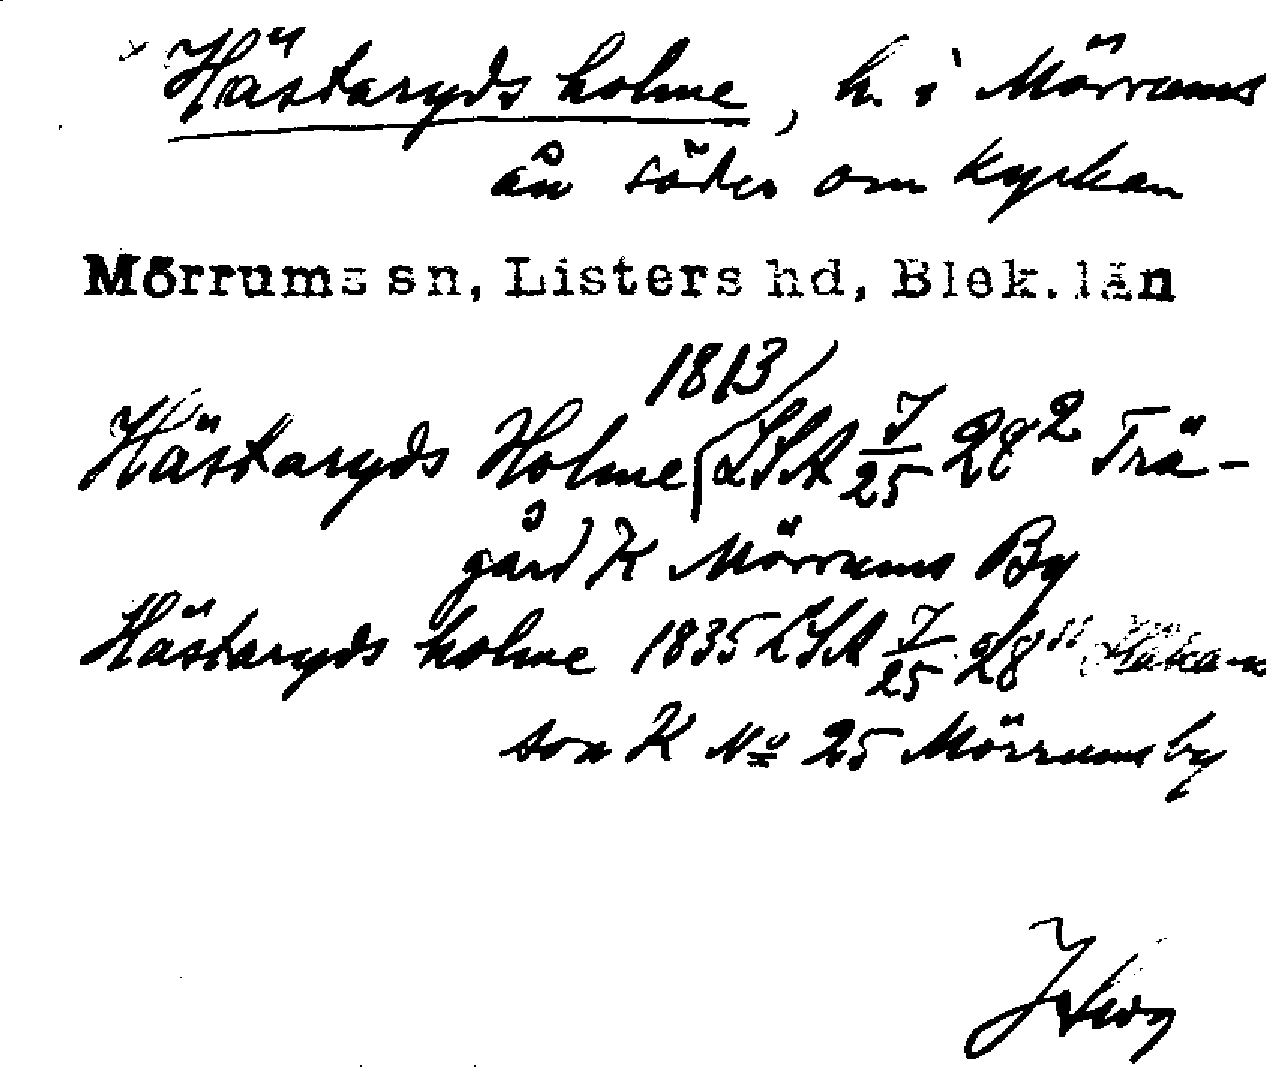 Hästaryds holme, h. i Mörrums
ån söder om kyrkan
Mörrums sn, Listers hd, Blek. län
1813
Hästaryds Holme LSA J/25 28² Trä-
gård K Mörrums By
Hästaryds holme 1835 LSA J/25 28¹¹ Håkan
son K No 25 Mörrums by